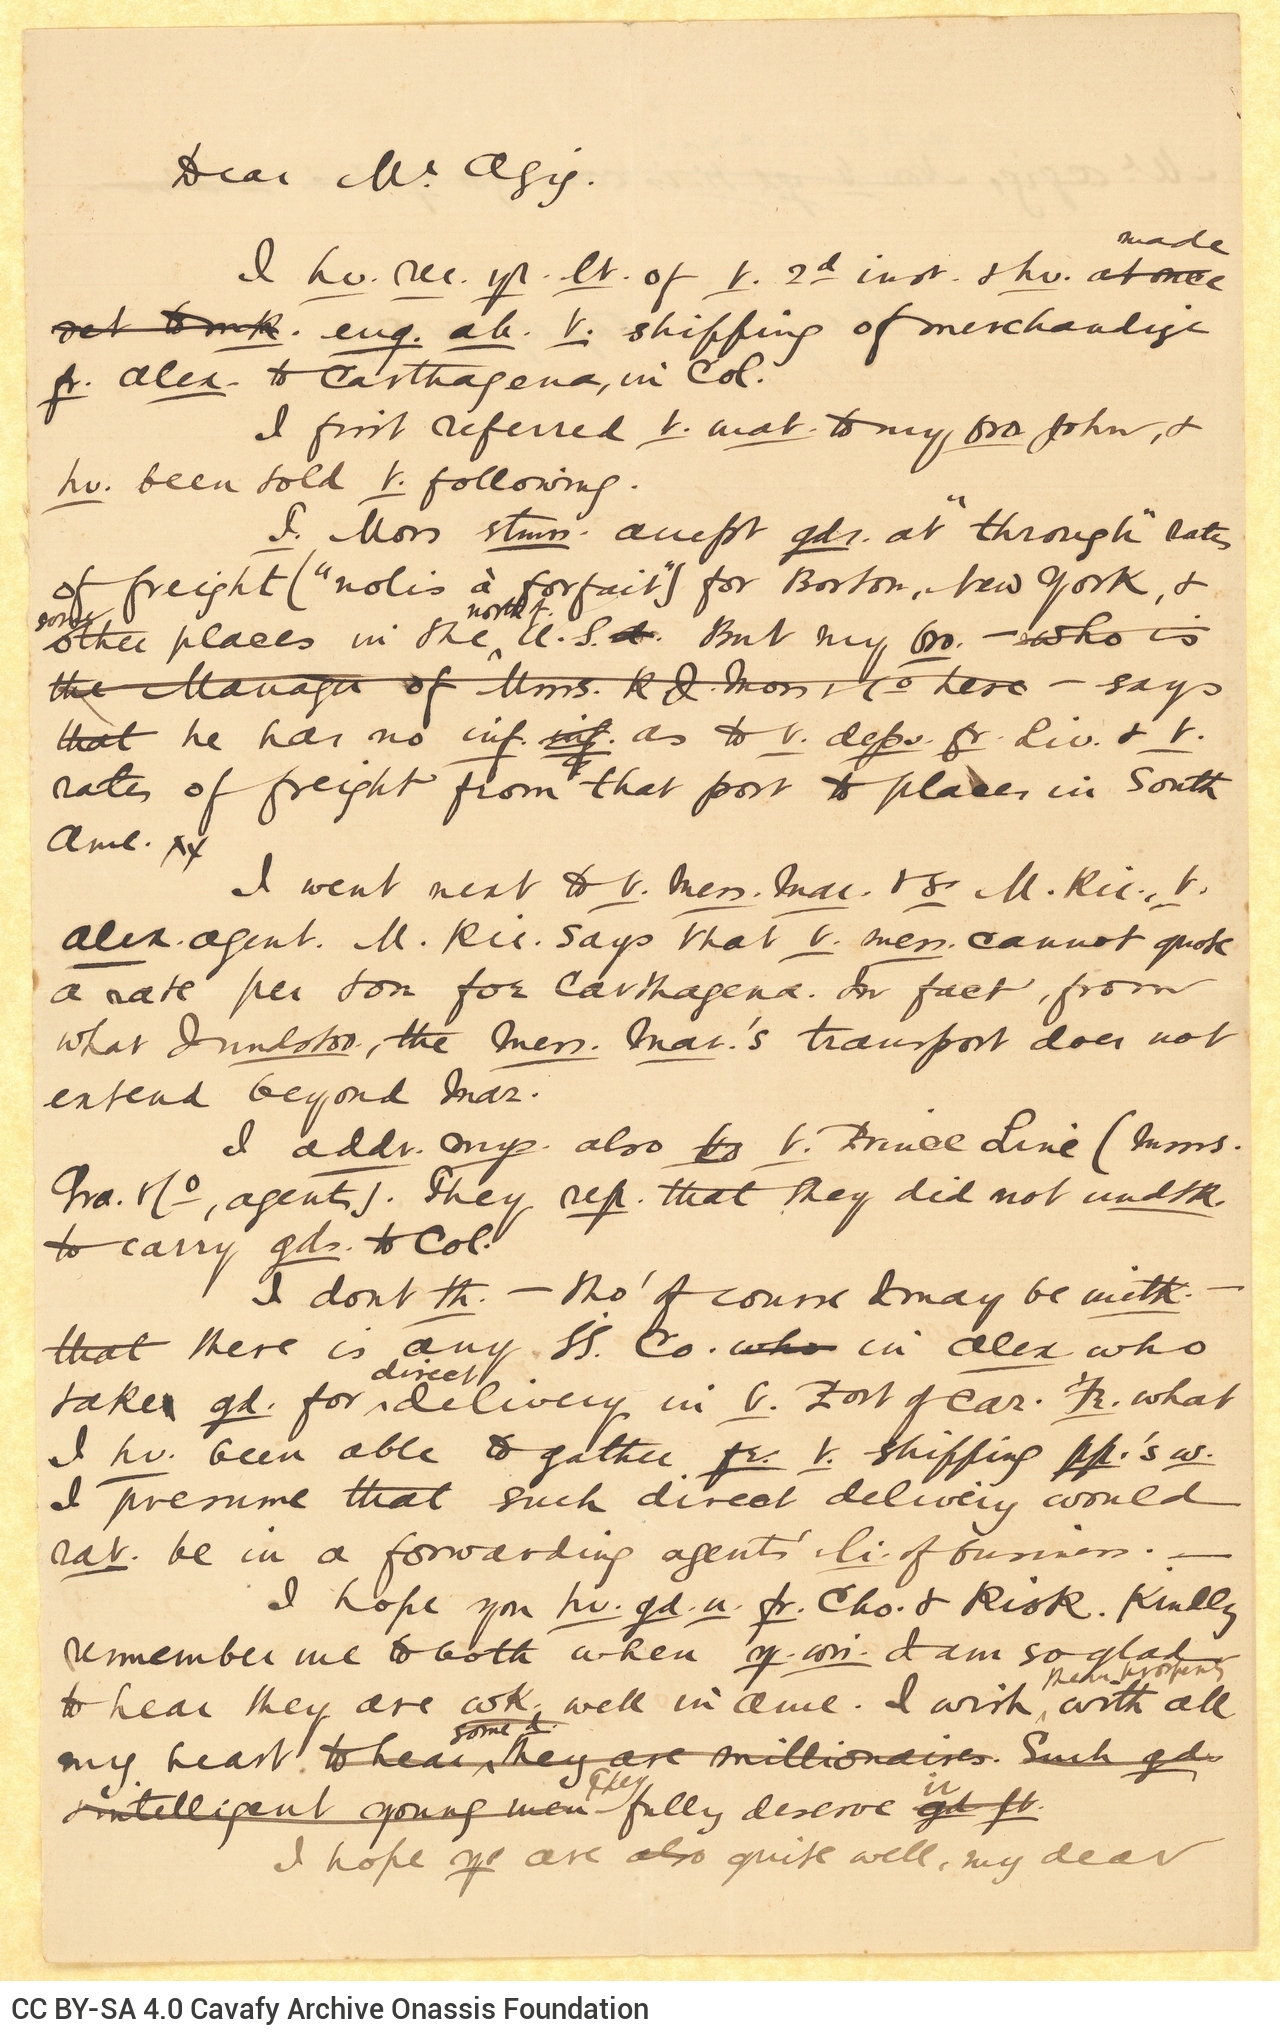 Dear Mr. Agig.
made
I hv. rec. yr. lt. of t. 2d inst. & hv. at once
set to mk. enq. ab. t. shipping of merchandize
fr. Alex. to Carthagena, in Col.
I first referred t. mat. to my bro John, &
hv. been told t. following.
T. Moss stmrs. accept gds. at "through" rates
of freight ("nolis à forfait") for Boston, New York, &
some north t.
other places in the U.S. But my bro. — who is
the Manager of Mssrs. R J. Moss & Co here — says
that he has no inf. inf. as to t. depv. fr. Liv. & t.
rates of freight from that port to places in South
Ame. xx
I went next to t. Mess. Mar. & M. Ric., t.
Alex. agent. M. Ric. says that t. mess. cannot quote
a rate per ton for Carthagena. In fact, from
what I undstd., the Mess. Mar.'s transport does not
extend beyond Mar.
I addr. mys. also to t. Prince Line (Mssrs.
Gra. & Co, agents). They rep. that they did not undtk.
to carry gds. to Col.
I dont th. — tho' of course I may be mistk. —
that there is any SS. Co. who in Alex who
direct
takes gd. for delivery in t. Port of Car. Fr. what
I hv. been able to gather fr. t. shipping pp.'s w.
I presume that such direct delivery would
rat. be in a forwarding agents' li. of business. —
I hope you hv. gd. n. fr. Cho. & Risk. Kindly
remember me to both when y. wri. I am so glad
them prosperity
to hear they are wk. well in Ame. I wish, with all
some d.
my heart to hear they are millionaires. Such gd.
they it
intelligent young men fully deserve gd ft.
I hope ye are also quite well, my dear
CC BY-SA 4.0 Cavafy Archive Onassis Foundation